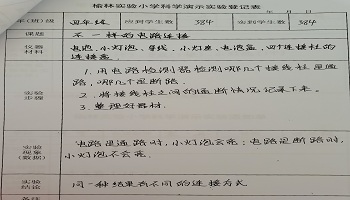 榆林实验小学科学演示实验登记表
年 月 日
年(班)级 四年级 应到学生数 384 实到学生数 384
课题 不一样的电路连接
仪器
材料
电池、小灯泡、导线、小灯座、电池盒、四个接线柱的
连接盒
实验
步骤
1. 用电路检测器检测哪几个接线柱是通
路,哪几个是断路.
2. 将接线柱之间的通断情况记录下来。
3. 整理好器材.
实验
现象
(数据)
电路是通路时,小灯泡会亮;电路是断路时,
小灯泡不会亮.
实验
结论
同一种结果有不同的连接方式
备注